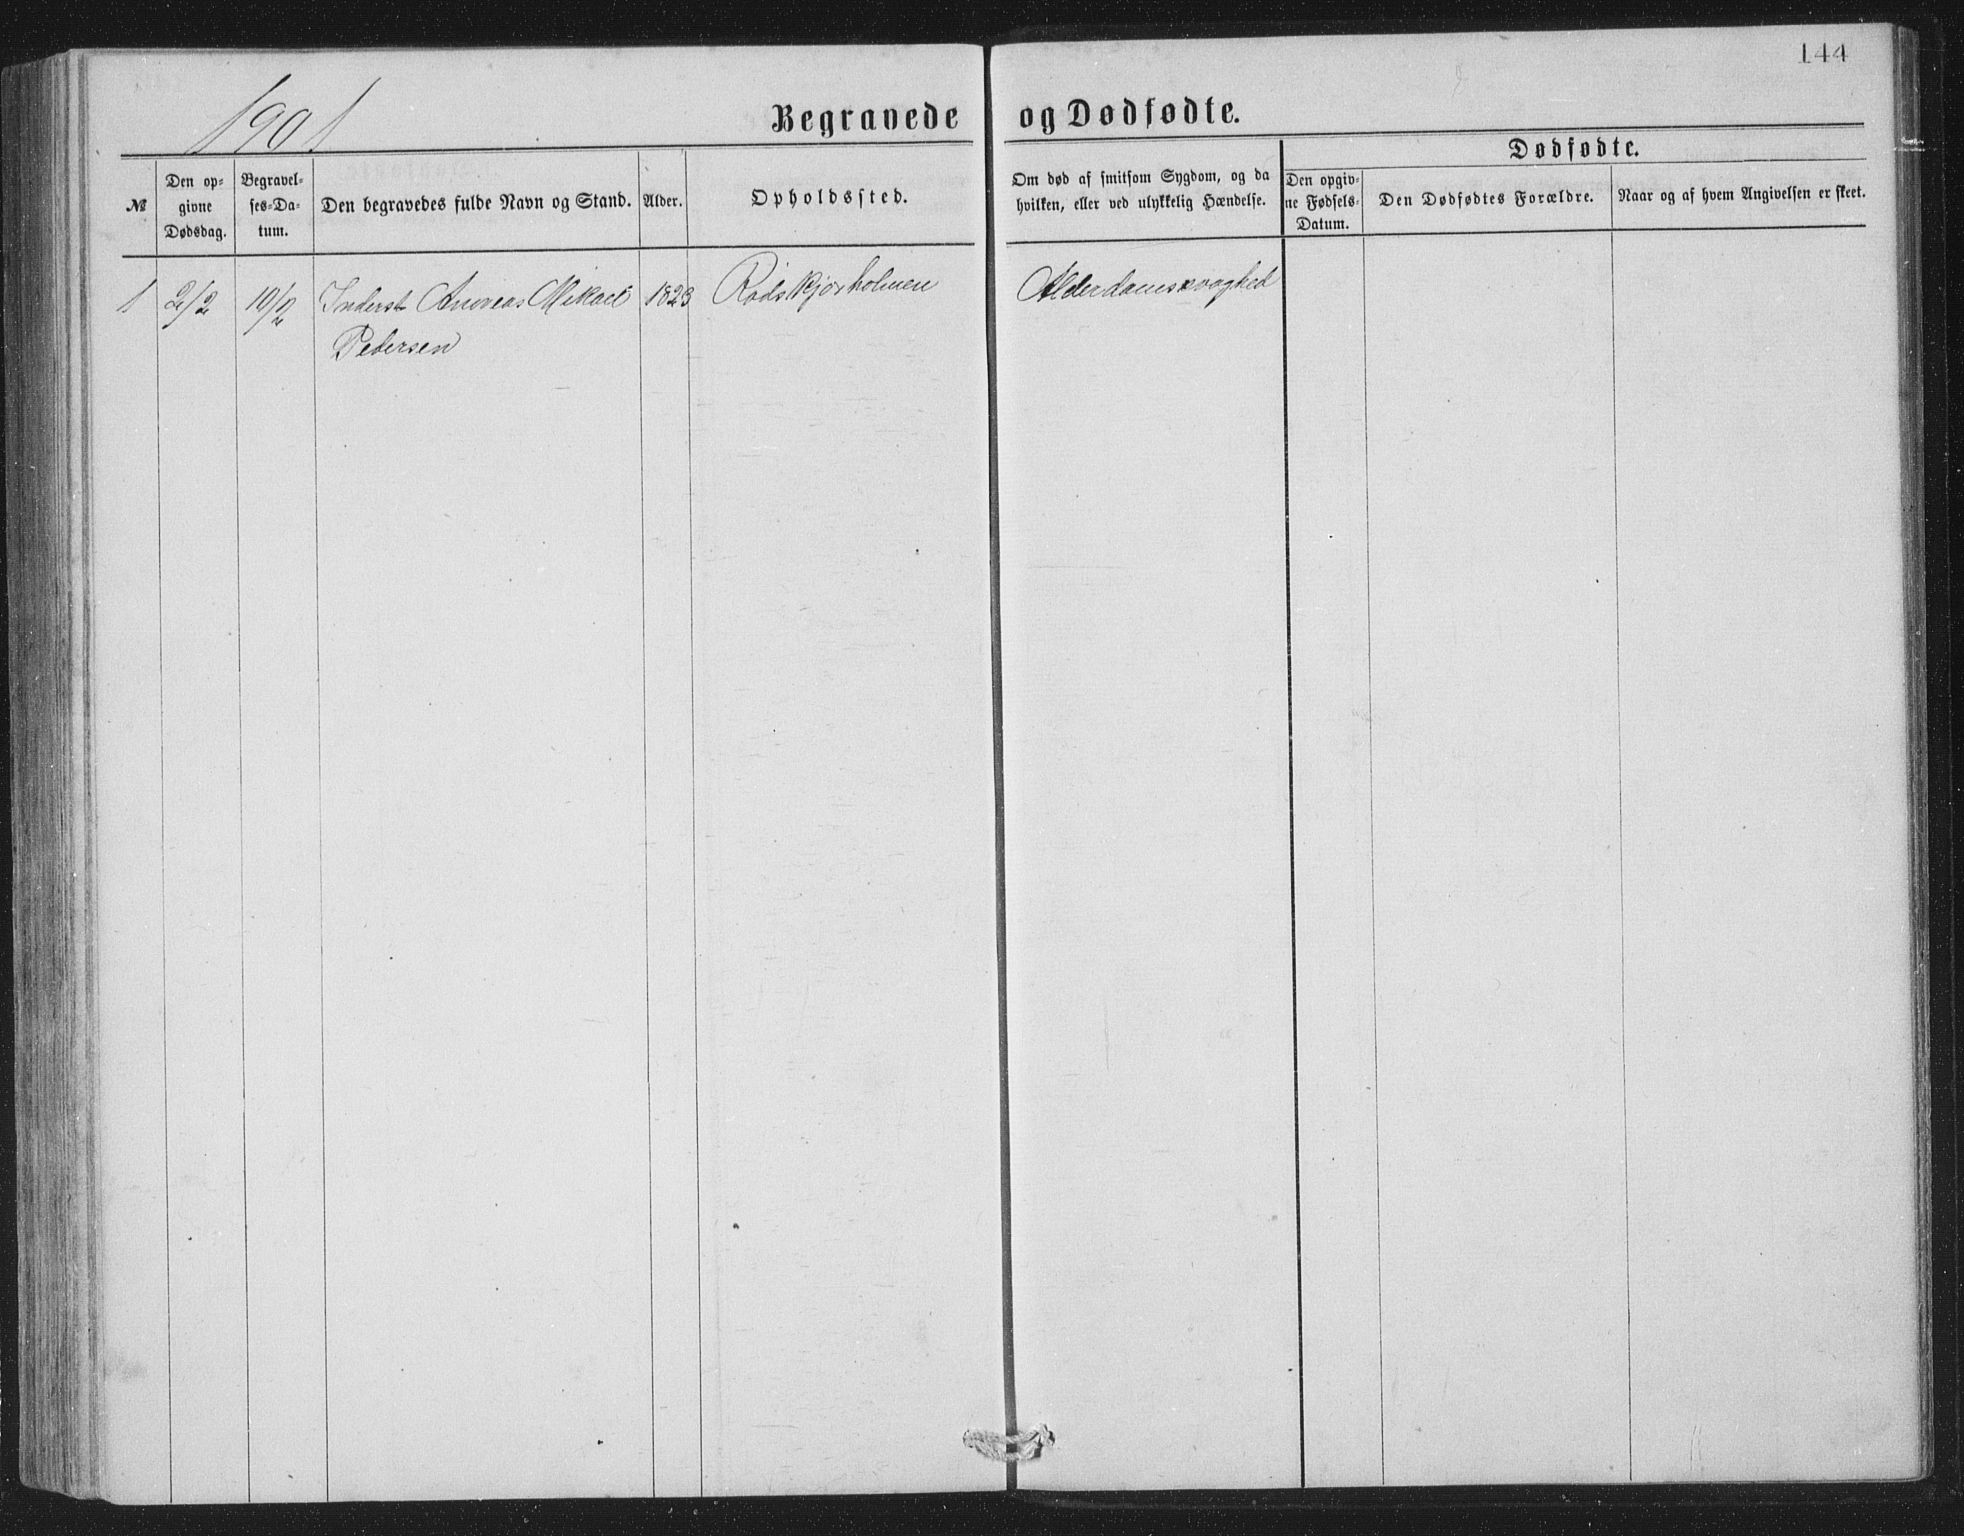 144
1901
Begravede og Dødfødte.
Dødfødte.
№
Den op-
givne
Dødsdag.
Begravel-
ses-Da-
tum.
Den begravedes fulde Navn og Stand.
Alder.
Opholdssted.
Om død af smitsom Sygdom, og da
hvilken, eller ved ulykkelig Hændelse.
Den opgiv-
ne Fødsels-
Datum.
Den Dødfødtes Forældre.
Naar og af hvem Angivelsen er skeet.
1 2/2 10/2 Inderst Andreas Mikael 1823 Rødskjærholmen Alderdomssvaghed
Pedersen